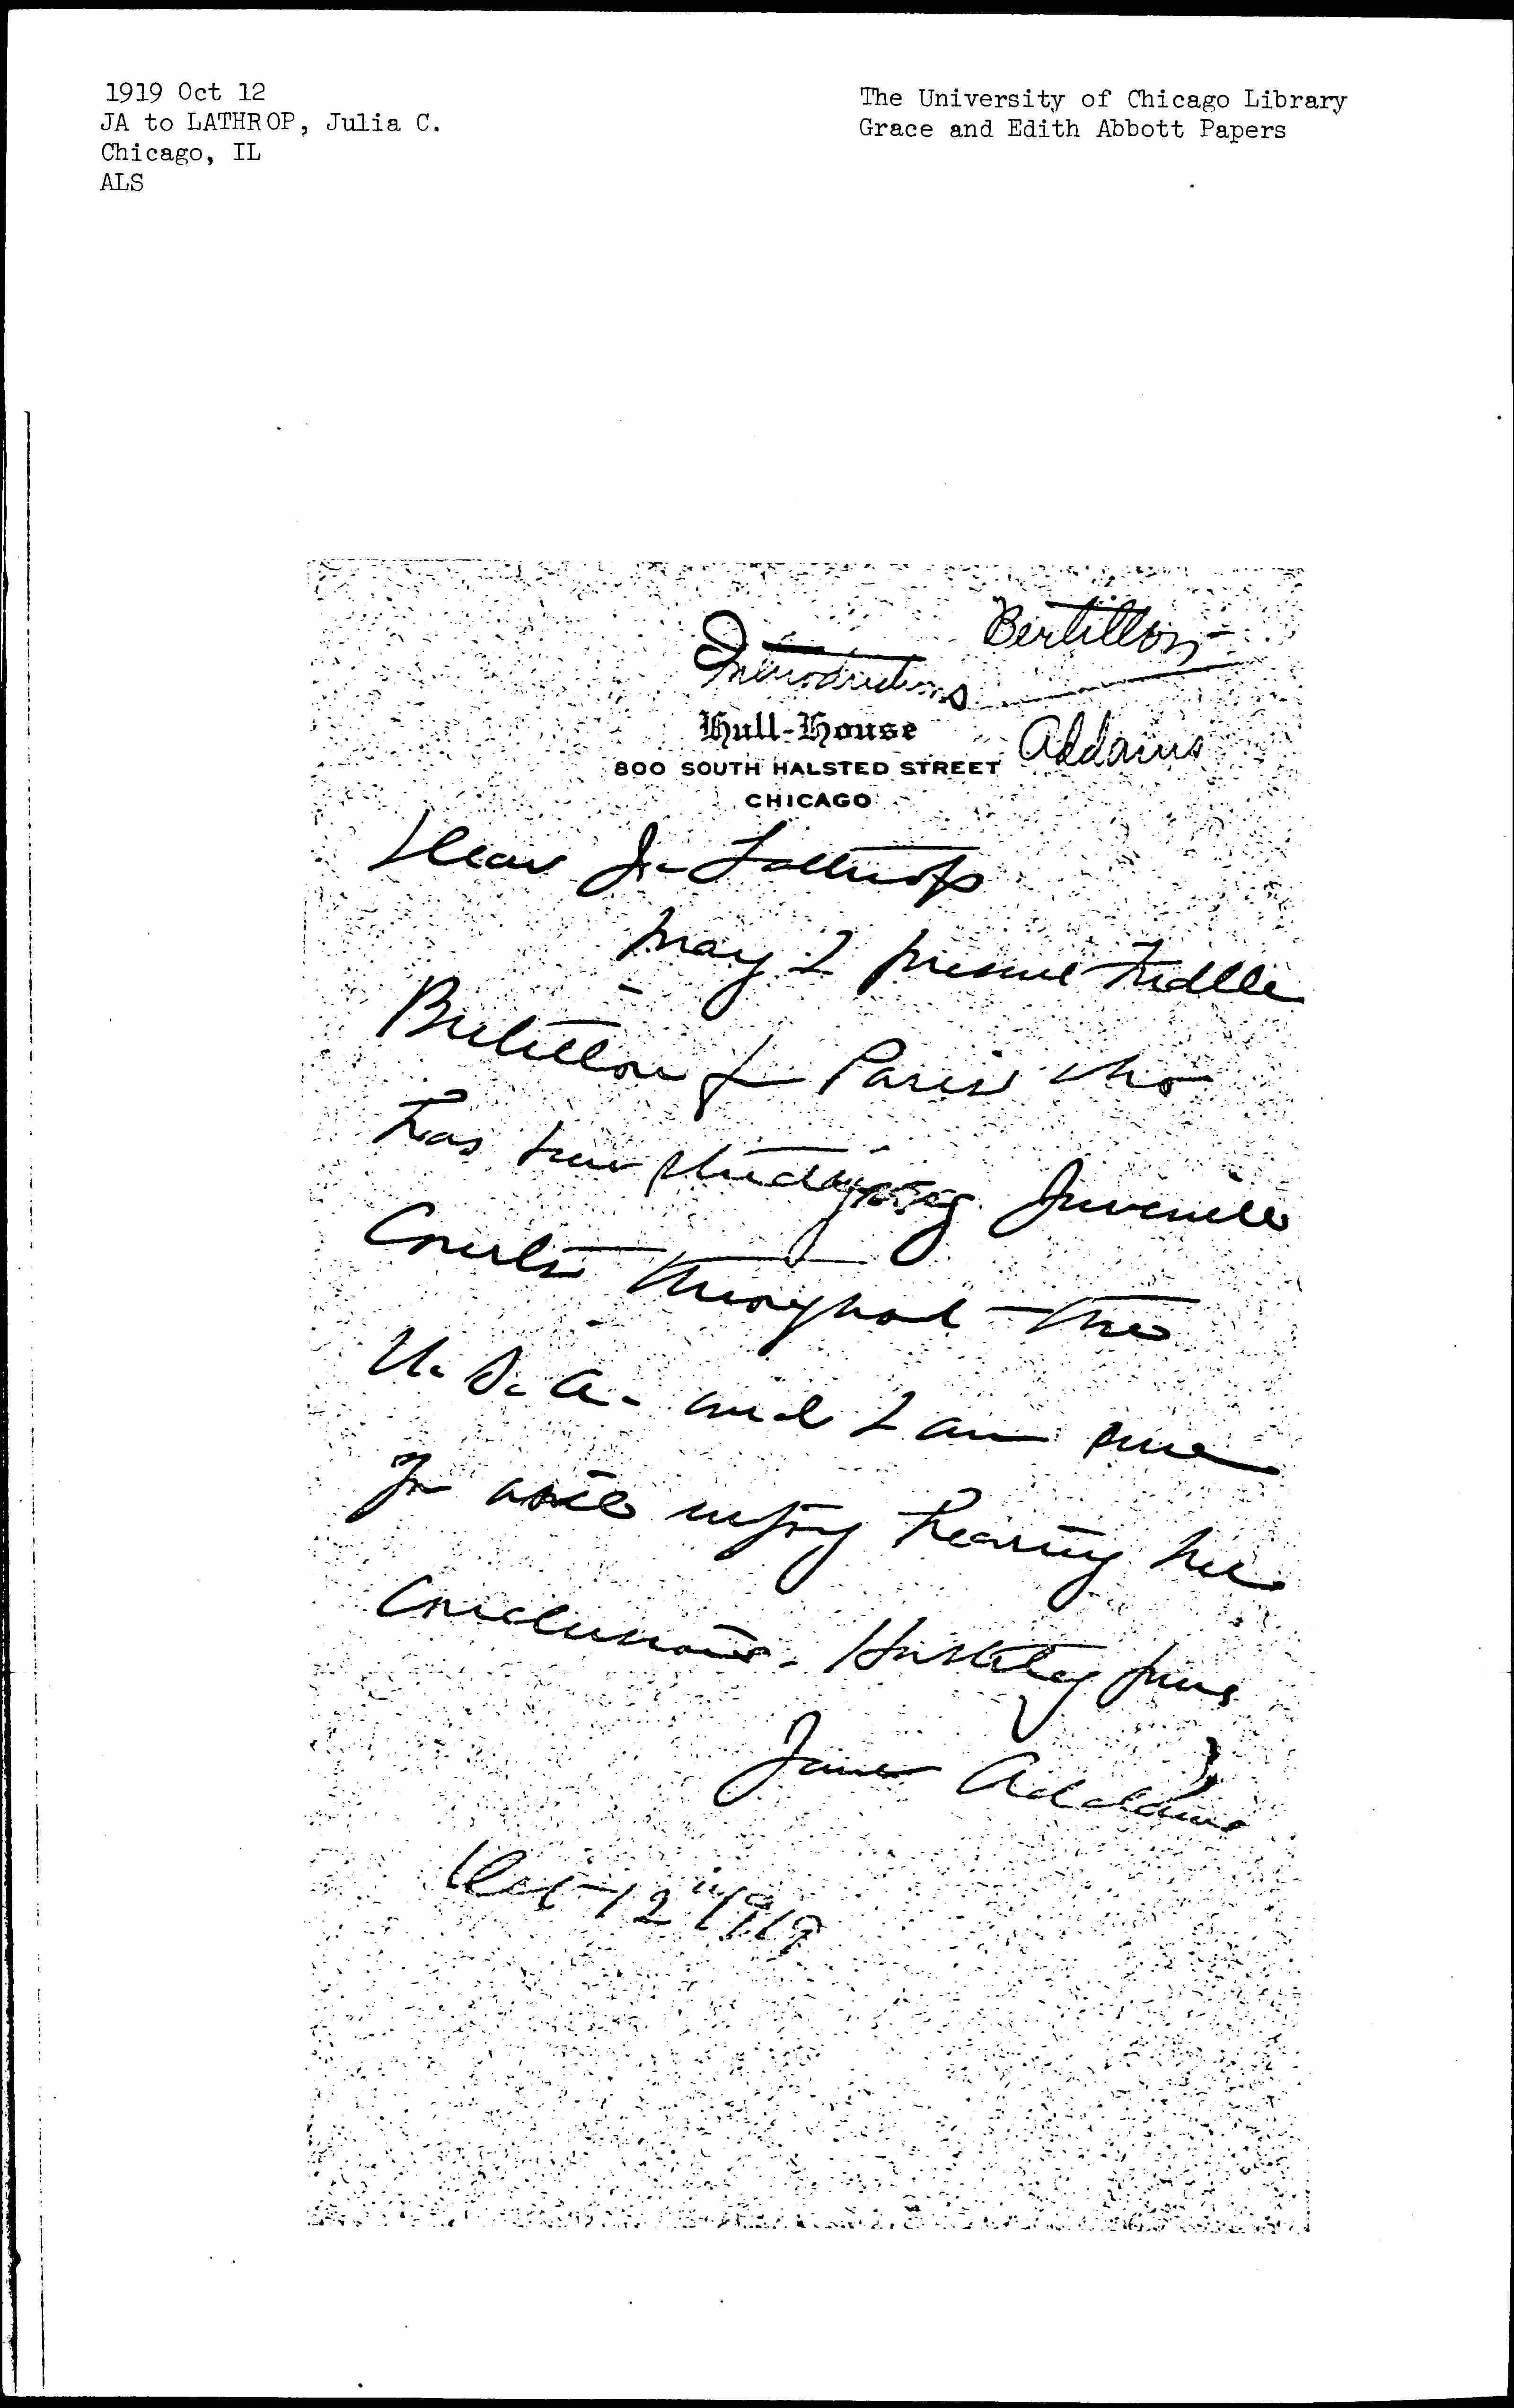 1919 Oct 12
JA to LATHROP, Julia C.
Chicago, IL
ALS
The University of Chicago Library
Grace and Edith Abbott Papers
Bertillon
Introductions
Hull-House
Addams
800 SOUTH HALSTED STREET
CHICAGO
Dear J. Lathrop
May I present Mdlle
Bertillon of Paris who
has been studying Juvenile
Courts throughout the
U.S.A. and I am sure
you will enjoy hearing her
conclusions. Hastily yours
Jane Addams
Oct 12" 1919